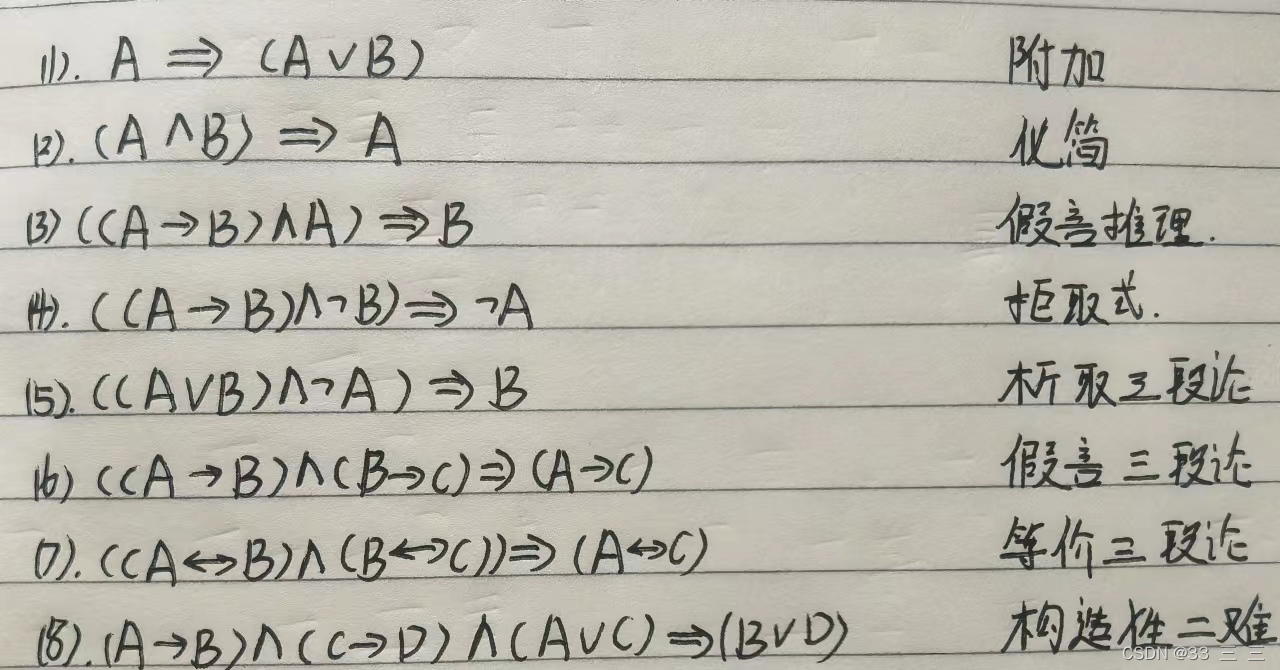 (1). A ⇒ (A∨B) 附加
(2). (A∧B) ⇒ A 化简
(3) ((A→B)∧A) ⇒ B 假言推理.
(4). ((A→B)∧¬B) ⇒ ¬A 拒取式.
(5). ((A∨B)∧¬A) ⇒ B 析取三段论
(6) ((A→B)∧(B→C) ⇒ (A→C) 假言三段论
(7). ((A↔B)∧(B↔C)) ⇒ (A↔C) 等价三段论
(8). (A→B)∧(C→D)∧(A∨C) ⇒ (B∨D) 构造性二难
CSDN @33 三 三